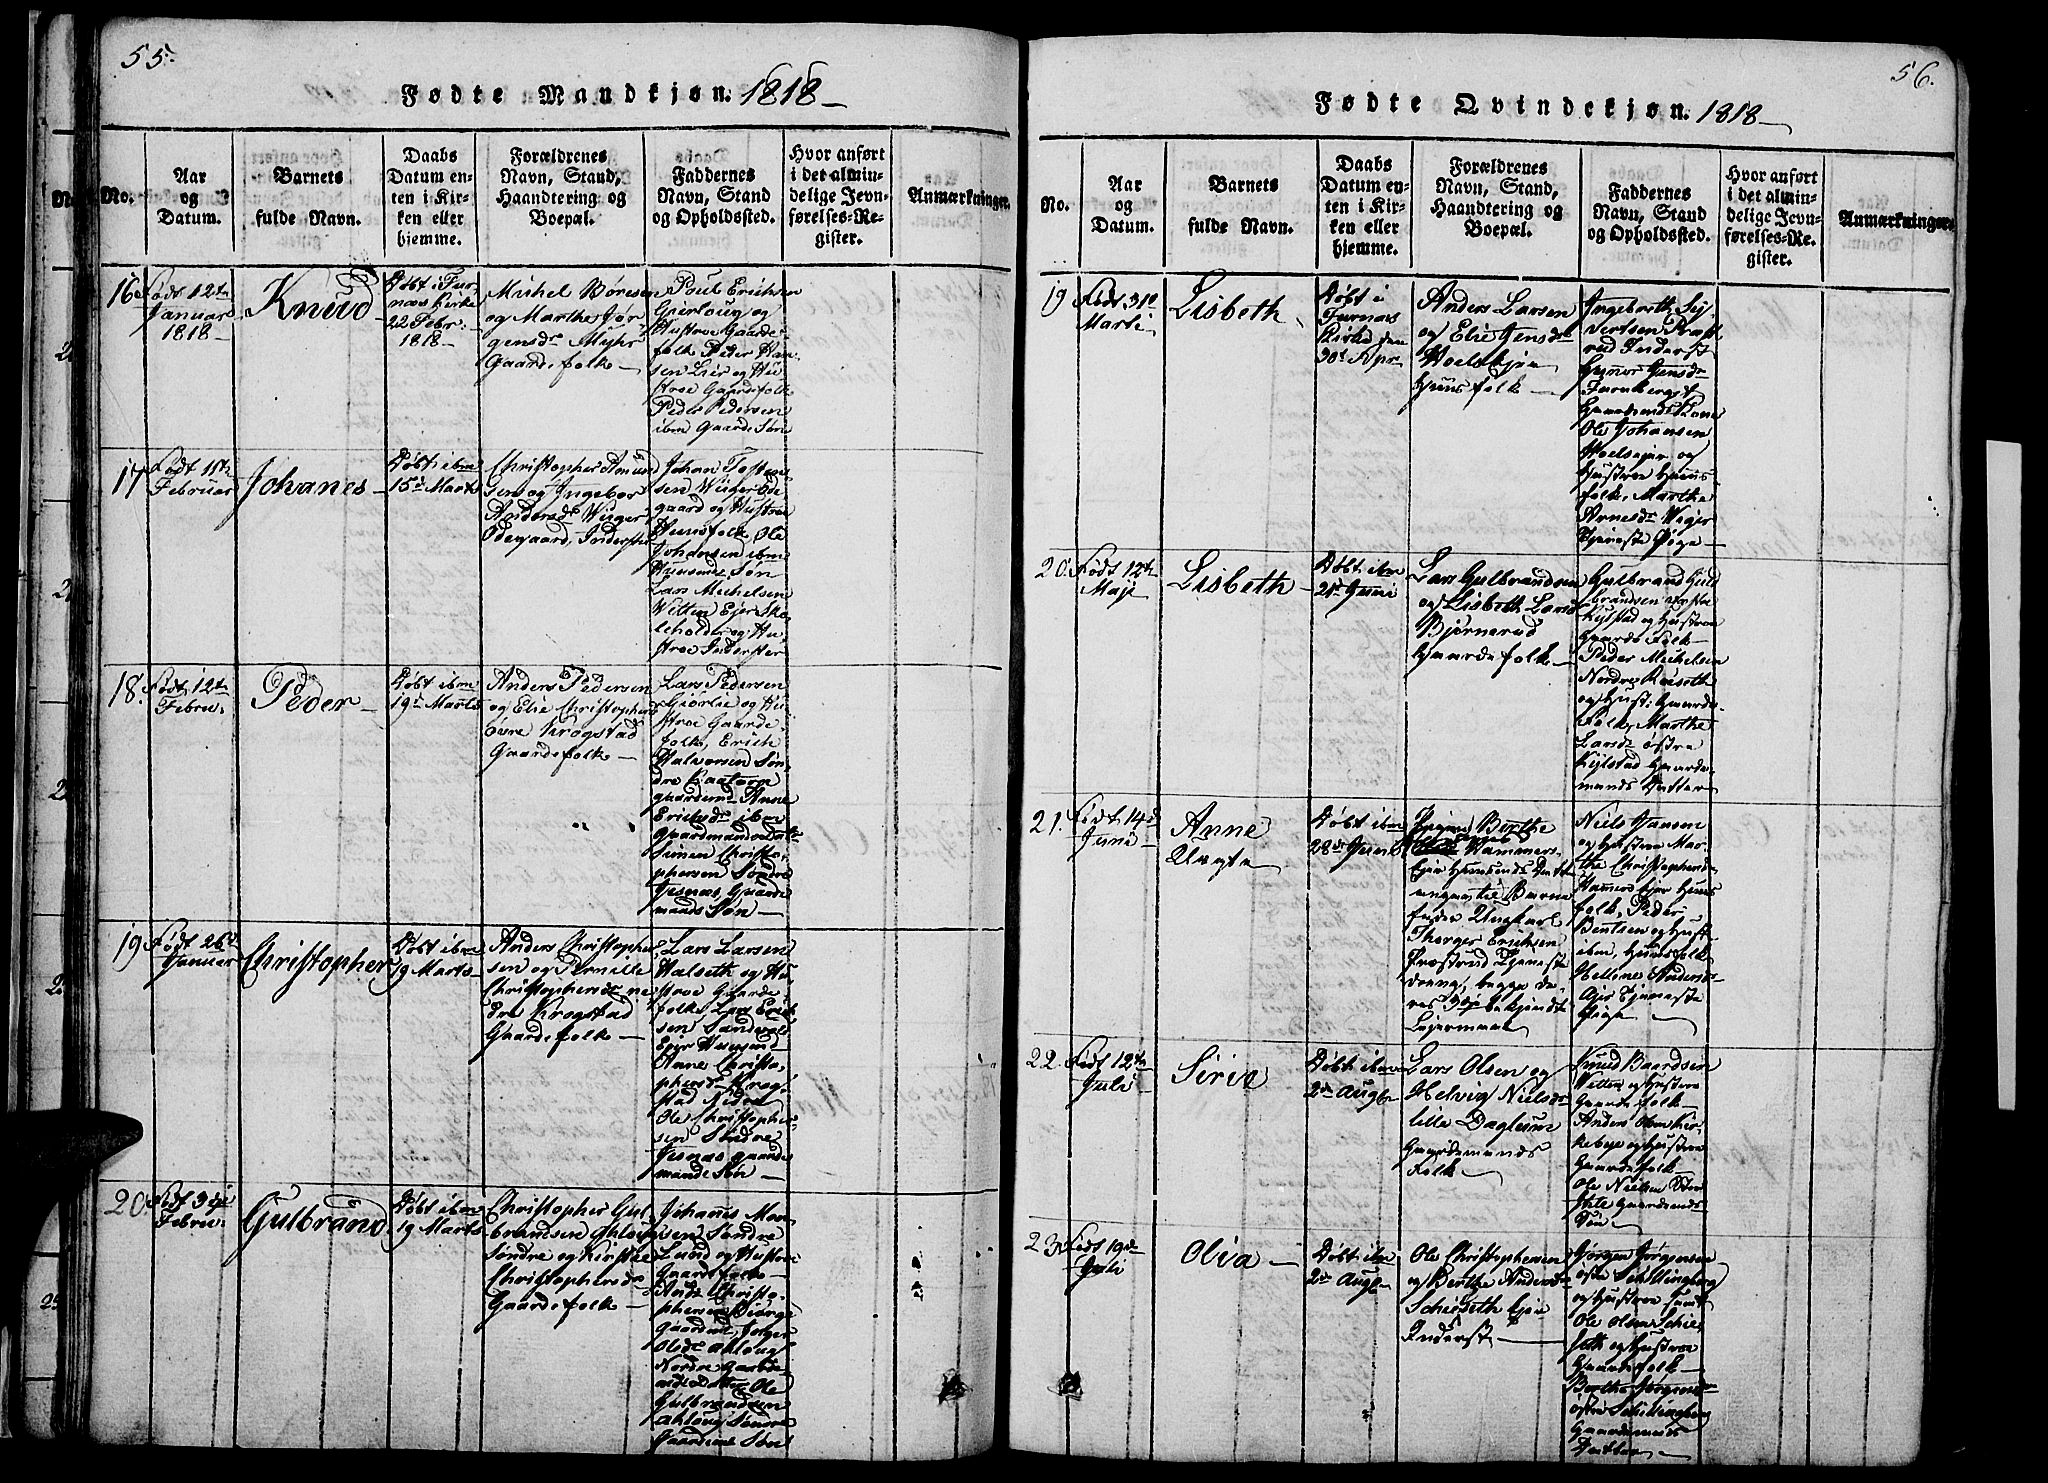 55.
Fødte Mandkjøn. 1818
No.
Aar
og
Datum.
Barnets
fulde Navn.
Daabs
Datum en-
ten i Kir-
ken eller
hjemme.
Forældrenes
Navn, Stand,
Haandtering og
Boepæl.
Faddernes
Navn, Stand
og Opholdssted.
Hvor anført
i det almin-
delige Jevn-
førelses-Re-
gister.
Anmærkninger.
16
Født 12te
Januar
1818
Knud
Døbt i Fur-
næs Kirke
22 Febr:
1818
Michel Børesen
og Marthe Jør
gensdr Myhr
Gaardefolk
Poul Erichsen
og
Hustroe Gaarde
folk Peder Han
sen Lier og Hu
stroe Gaardefolk
Peder Pedersen
ibm Gaarde Søn
17
Født 15te
Februar
Johanes
Døbt ibm
15de Marts
Christopher Amund
sen og Ingebor
Andersdr Wuger
Ødegaard, Inderster
Johan Tosten
sen Wuger Øde
gaard og Hustroe
Huusfolk, Ole
Johansen ibm
Huusmds Søn
Lars Michelsen
Witten Ejer Sko
leholder og Hu
stroe Inderster
18.
Født 12te
Febru:
Peder
Døbt ibm
19de Marts
Anders Pedersen
og Elie Christophers
øvre Krogstad
Gaardefolk
Lars Pedersen
og Hu
stroe Gaarde
folk, Erich
Halvorsen Søn
dre
Anne
Erichsdr ibm
Gaardmands Datt
Simen Christo
phersen Søndre
Jesnæs, Gaarde
mands Søn
19
Født 26de
Januar
Christopher
Døbt ibm
19 Marts
Anders Christopher
sen og Pernille
Christophersdr ne
dre Krogstad
Gaardefolk
Lars Larsen
Halseth og Hu
stroe Gaarde
folk, Lars Erich
sen
Ejer Huusmd
Anne Christo
phersdr Krog
stad Nedre
Ole Christopher
sen Søndre
Jesnæs gaarde
mands Søn
20
Født 3die
Febru:
Gulbrand
Døbt ibm
19 Marts
Christopher Gul
brandsen Ahloug
Søndre og Kirstie
Christophersdr
Gaardefolk
Johanes
sen Søndre
Lund og Hustroe
Gaardefolk
Christo
phersen
Gaardmd, Holger
Olsdr Ahloug
Nordre Gaarde
Datter Ole
Gulbrandsen
Ahloug Søndre
Gaardmds Søn
56.
Fødte Qvindekjøn. 1818
No.
Aar
og
Datum.
Barnets
fulde Navn.
Daabs
Datum en-
ten i Kir-
ken eller
hjemme.
Forældrenes
Navn, Stand,
Haandtering og
Boepæl.
Faddernes
Navn, Stand
og Opholdssted.
Hvor anført
i det almin-
delige Jevn-
førelses-Re-
gister.
Anmærkninger.
19
Født 31te
Marti
Lisbeth
Døbt i
Furnæs
Kirke den
30te Apr
Anders Larsen
og Elie Jensdr
Hoelsejer
Huusfolk
Ingebreth Sy
vertsen Præst
rud Inderst
Gunor Jensdr
Furuberget
Gaardmands Kone
Ole Johansen
Hoelsejer og
Hustroe Huus
folk, Marthe
Arnesdr Wiger
Tjeneste Pige
20.
Født 12te
Maji
Lisbeth
Døbt ibm
21de Juni
Lars Gulbrandsen
og Lisbeth Larsdr
Bjørnerud
Gaardefolk
Gulbrand Gul
brandsen vestre
Kylstad og Hustroe
Gaarde Folk
Peder Michelsen
Nordre
og Hust: Gaarde
Folk, Marthe
Larsdr østre
Kylstad Gaarde
mands Datter
21.
Født 14de
Juni
Anne
Uægte
Døbt ibm
28de Juni
Pigen Berthe
Hammers
Ejer Huusmds Datt
angivet til Barne
fader Ungkarl
Thorger Erichsen
Præstrud Tjeneste
dreng, begge de
res 1ste bekjendte
Lejermaal
Niels Hansen
og Hustroe Mar
the Christophersdr
Hammers Ejer Huus
folk, Peder
Bentsen og Hust:
ibm, Huusfolk
Helline Andersdr
Tjeneste
Pige
22.
Født 12te
Juli
Sirie
Døbt ibm
2de Augt
Lars Olsen og
Helvig Nielsdr
lille Daglum
Gaardemands
Folk
Knud Baardsen
Vetten og Hustroe
Gaardefolk
Anders Olsen Kir
kebye og Hustroe
Gaardefolk
Ole Nielsen
Gaardmands
Søn
23.
Født 19de
Juli
Olia
Døbt ibm
2de Augt
Ole Christophersen
og Berthe Andersdr
Schieseth Ejer
Inderst
Jørgen Jørgensen
østre Schillingberg
og Hustroe samt
Ole Olsen Schie
seth og Hustroe
Gaardefolk
Berthe Jørgensdr
østre Schillingberg
Gaardemands
Datter